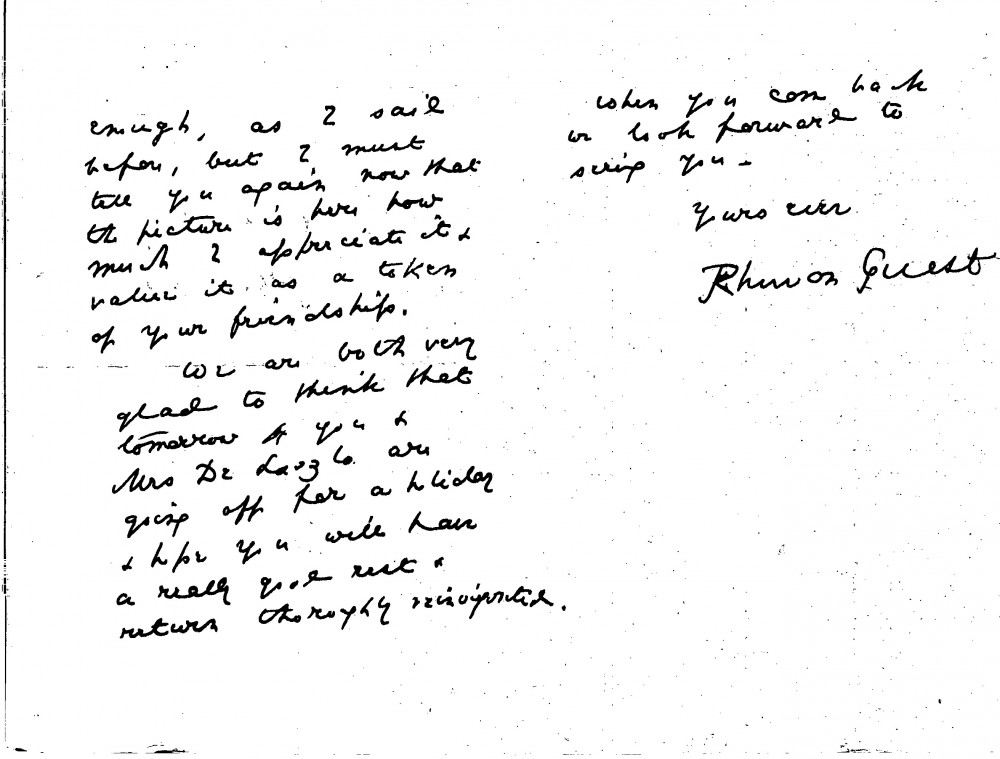 enough, as I said
before, but I must
tell you again now that
the picture is here how
much I appreciate it &
value it as a token
of your friendship.
We are both very
glad to think that
tomorrow you &
Mrs De Laszlo are
going off for a holiday
& hope you will have
a really good rest &
return thoroughly reinvigorated.
When you come back
we look forward to
seeing you –
Yours ever
Rhuvon Guest